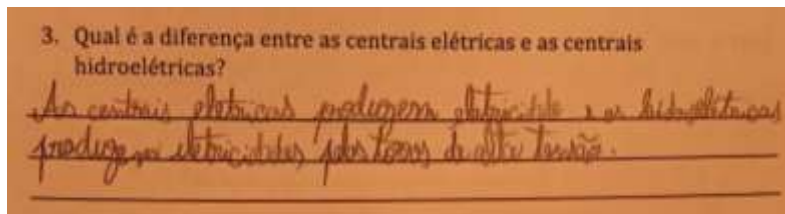 3. Qual é a diferença entre as centrais elétricas e as centrais
hidroelétricas?
As centrais eletricas produzem eletricidade e as hidroelétricas
produzem eletricidades pelos de alta tensão.